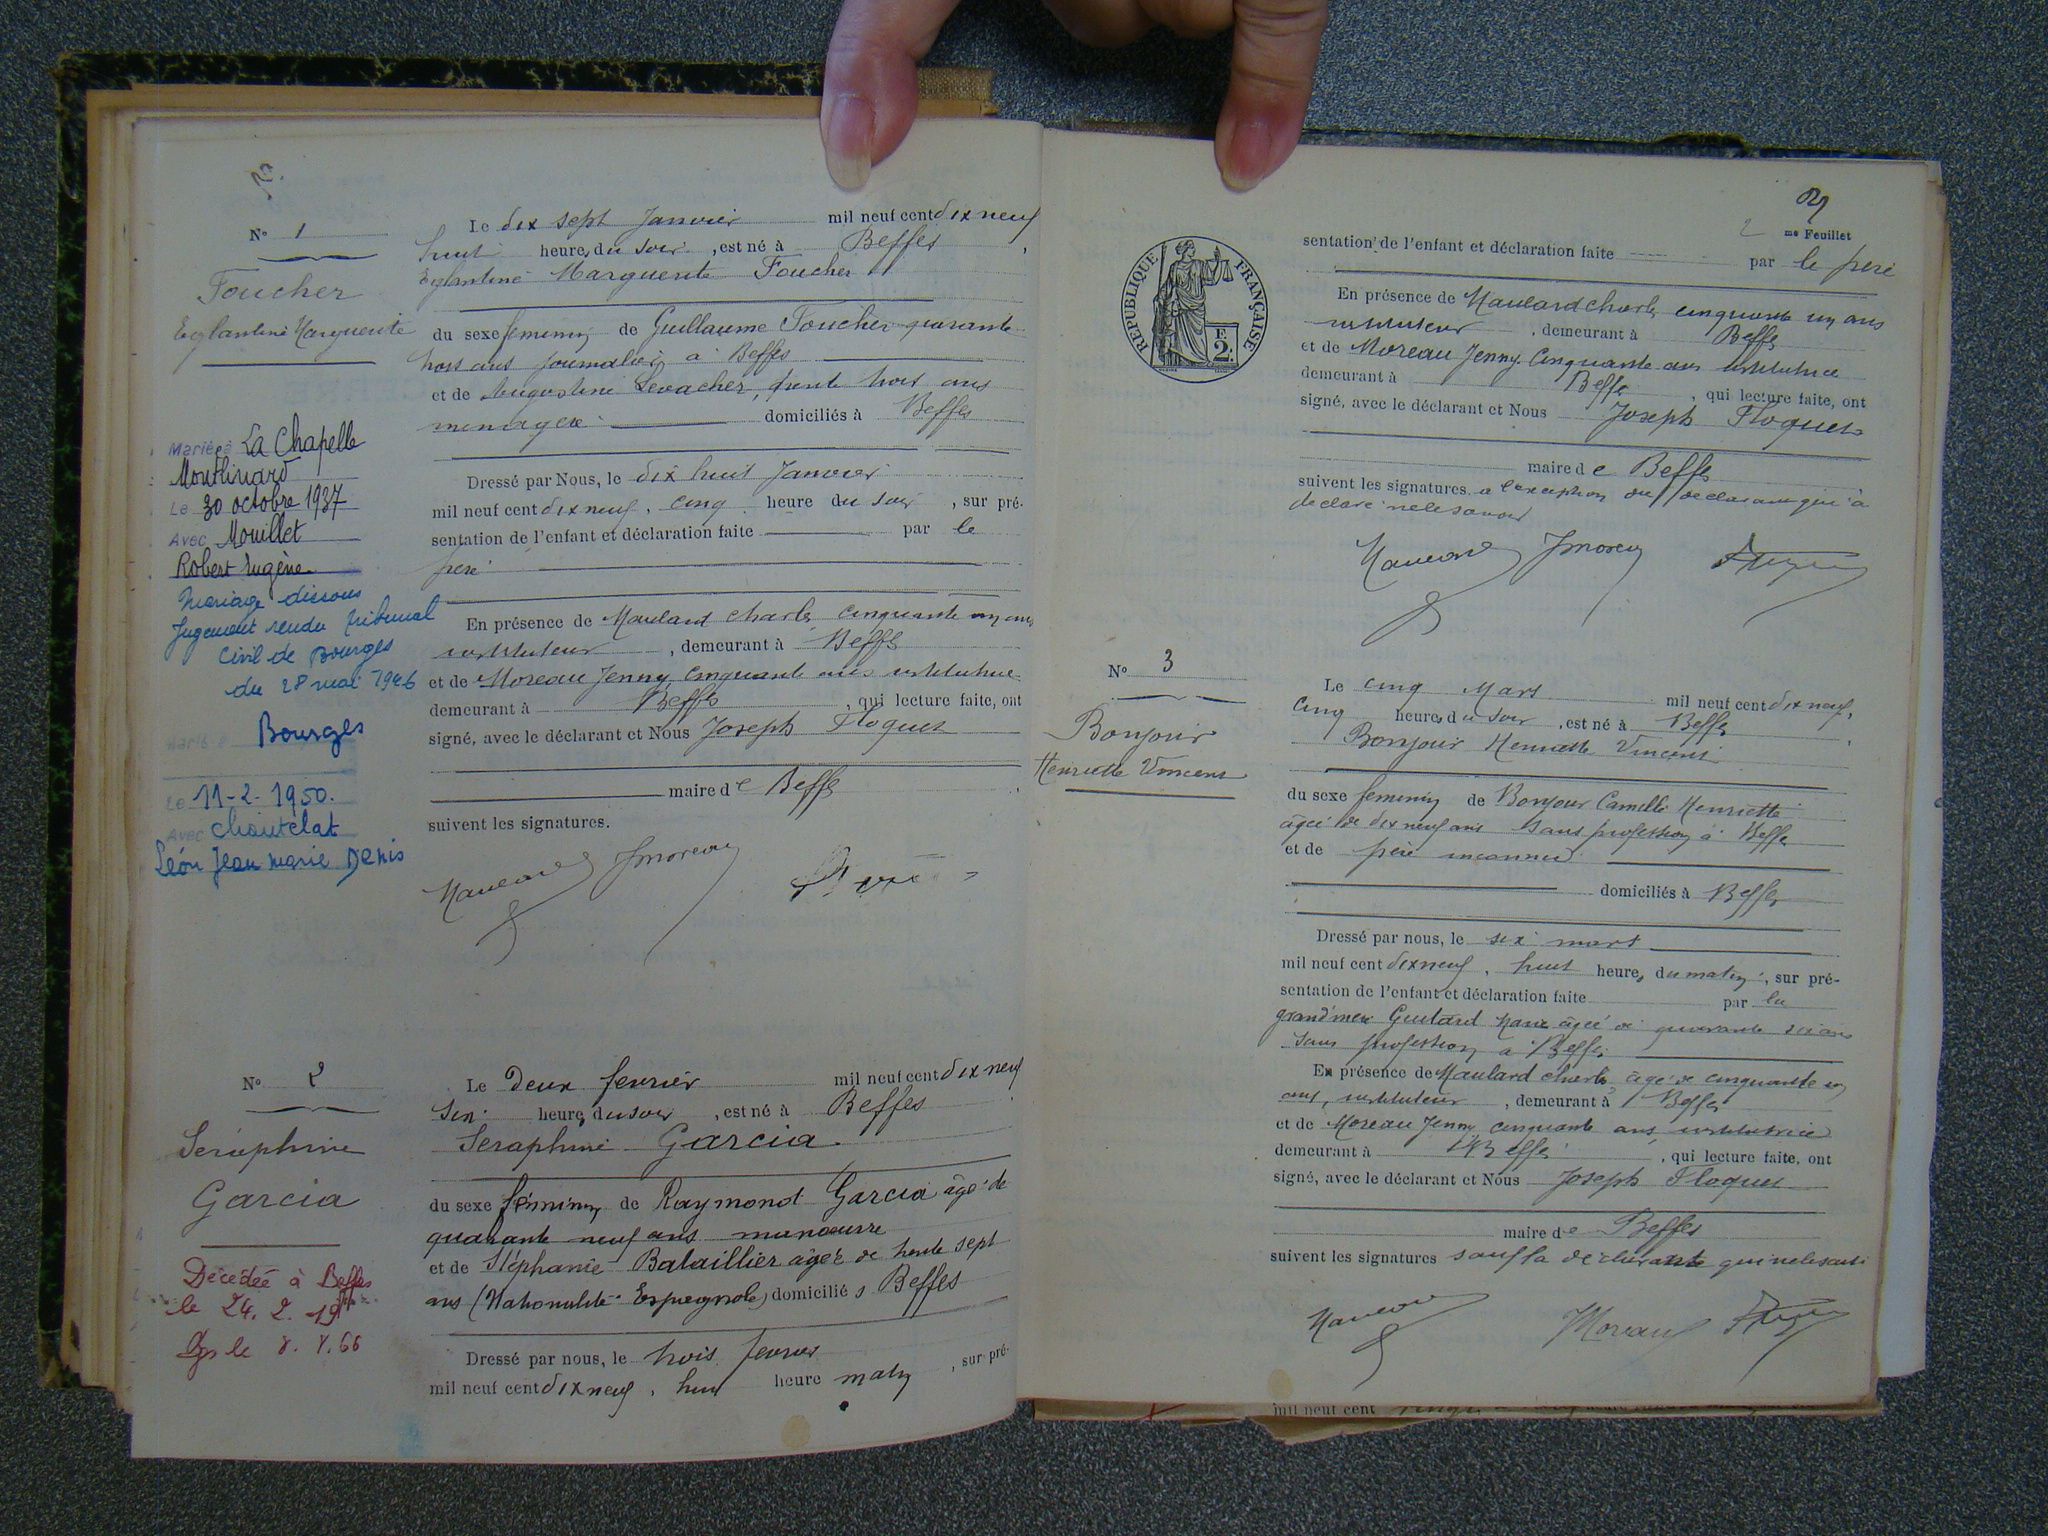 N° 1
Foucher
Eglantine Marguerite
Marié à La Chapelle
Montlinard
Le 30 octobre 1937
Avec Mouillet
Robert Eugène
Mariage dissous
Jugement rendu tribunal
civil de Bourges
du 28 mai 1946
Marié à Bourges
Le 11-2-1950.
Avec Chautelat
Léon Jean Marie Denis
Le dix sept Janvier mil neuf cent dix neuf
huit heures du soir, est né à Beffes,
Eglantine Marguerite Foucher
du sexe feminin de Guillaume Foucher quarante
trois ans journalier à Beffes
et de Augustine Levacher, trente trois ans
menagere domiciliés à Beffes
Dressé par Nous, le dix huit Janvier
mil neuf cent dix neuf, cinq heure du soir, sur pré-
sentation de l'enfant et déclaration faite par le
pere
En présence de Maulard Charles cinquante un ans
instituteur, demeurant à Beffes
et de Moreau Jenny cinquante ans institutrice
demeurant à Beffes, qui lecture faite, ont
signé, avec le déclarant et Nous Joseph Floquet
maire de Beffes
suivent les signatures.
Maulard JMoreau
N° 2
Séraphine
Garcia
Décédée à Beffes
le 24. 2. 19
le 8. 8. 66
Le Deux fevrier mil neuf cent dix neuf
Six heures du soir, est né à Beffes
Seraphine Garcia
du sexe féminin de Raymond Garcia âgé de
quarante neuf ans manœuvre
et de Stéphanie Bataillier âgée de trente sept
ans (Nationalité Espagnole) domiciliés Beffes
Dressé par nous, le trois fevrier
mil neuf cent dix neuf, huit heure matin, sur pré-
2 me Feuillet
REPUBLIQUE FRANÇAISE
F. 2.
sentation de l'enfant et déclaration faite par le pere
En présence de Maulard Charles cinquante un ans
instituteur, demeurant à Beffes
et de Moreau Jenny cinquante ans institutrice
demeurant à Beffes, qui lecture faite, ont
signé, avec le déclarant et Nous Joseph Floquet
maire de Beffes
suivent les signatures a l'exception du declarant qui a
declaré ne le savoir
Maulard JMoreau
N° 3
Bonjour
Henriette Vincent
Le cinq Mars mil neuf cent dix neuf,
cinq heures du soir, est né à Beffes
Bonjour Henriette Vincent
du sexe feminin de Bonjour Camille Henriette
âgée de dix neuf ans sans profession à Beffes
et de père inconnu
domiciliés à Beffes
Dressé par nous, le six mars
mil neuf cent dix neuf, huit heures du matin, sur pré-
sentation de l'enfant et déclaration faite par la
grand'mère Guitard Marie âgée de quarante six ans
sans profession à Beffes
En présence de Maulard Charles âgé de cinquante un
ans, instituteur, demeurant à Beffes
et de Moreau Jenny cinquante ans institutrice
demeurant à Beffes, qui lecture faite, ont
signé, avec le déclarant et Nous Joseph Floquet
maire de Beffes
suivent les signatures sauf la declarante qui ne le sait
Maulard JMoreau
mil neuf cent